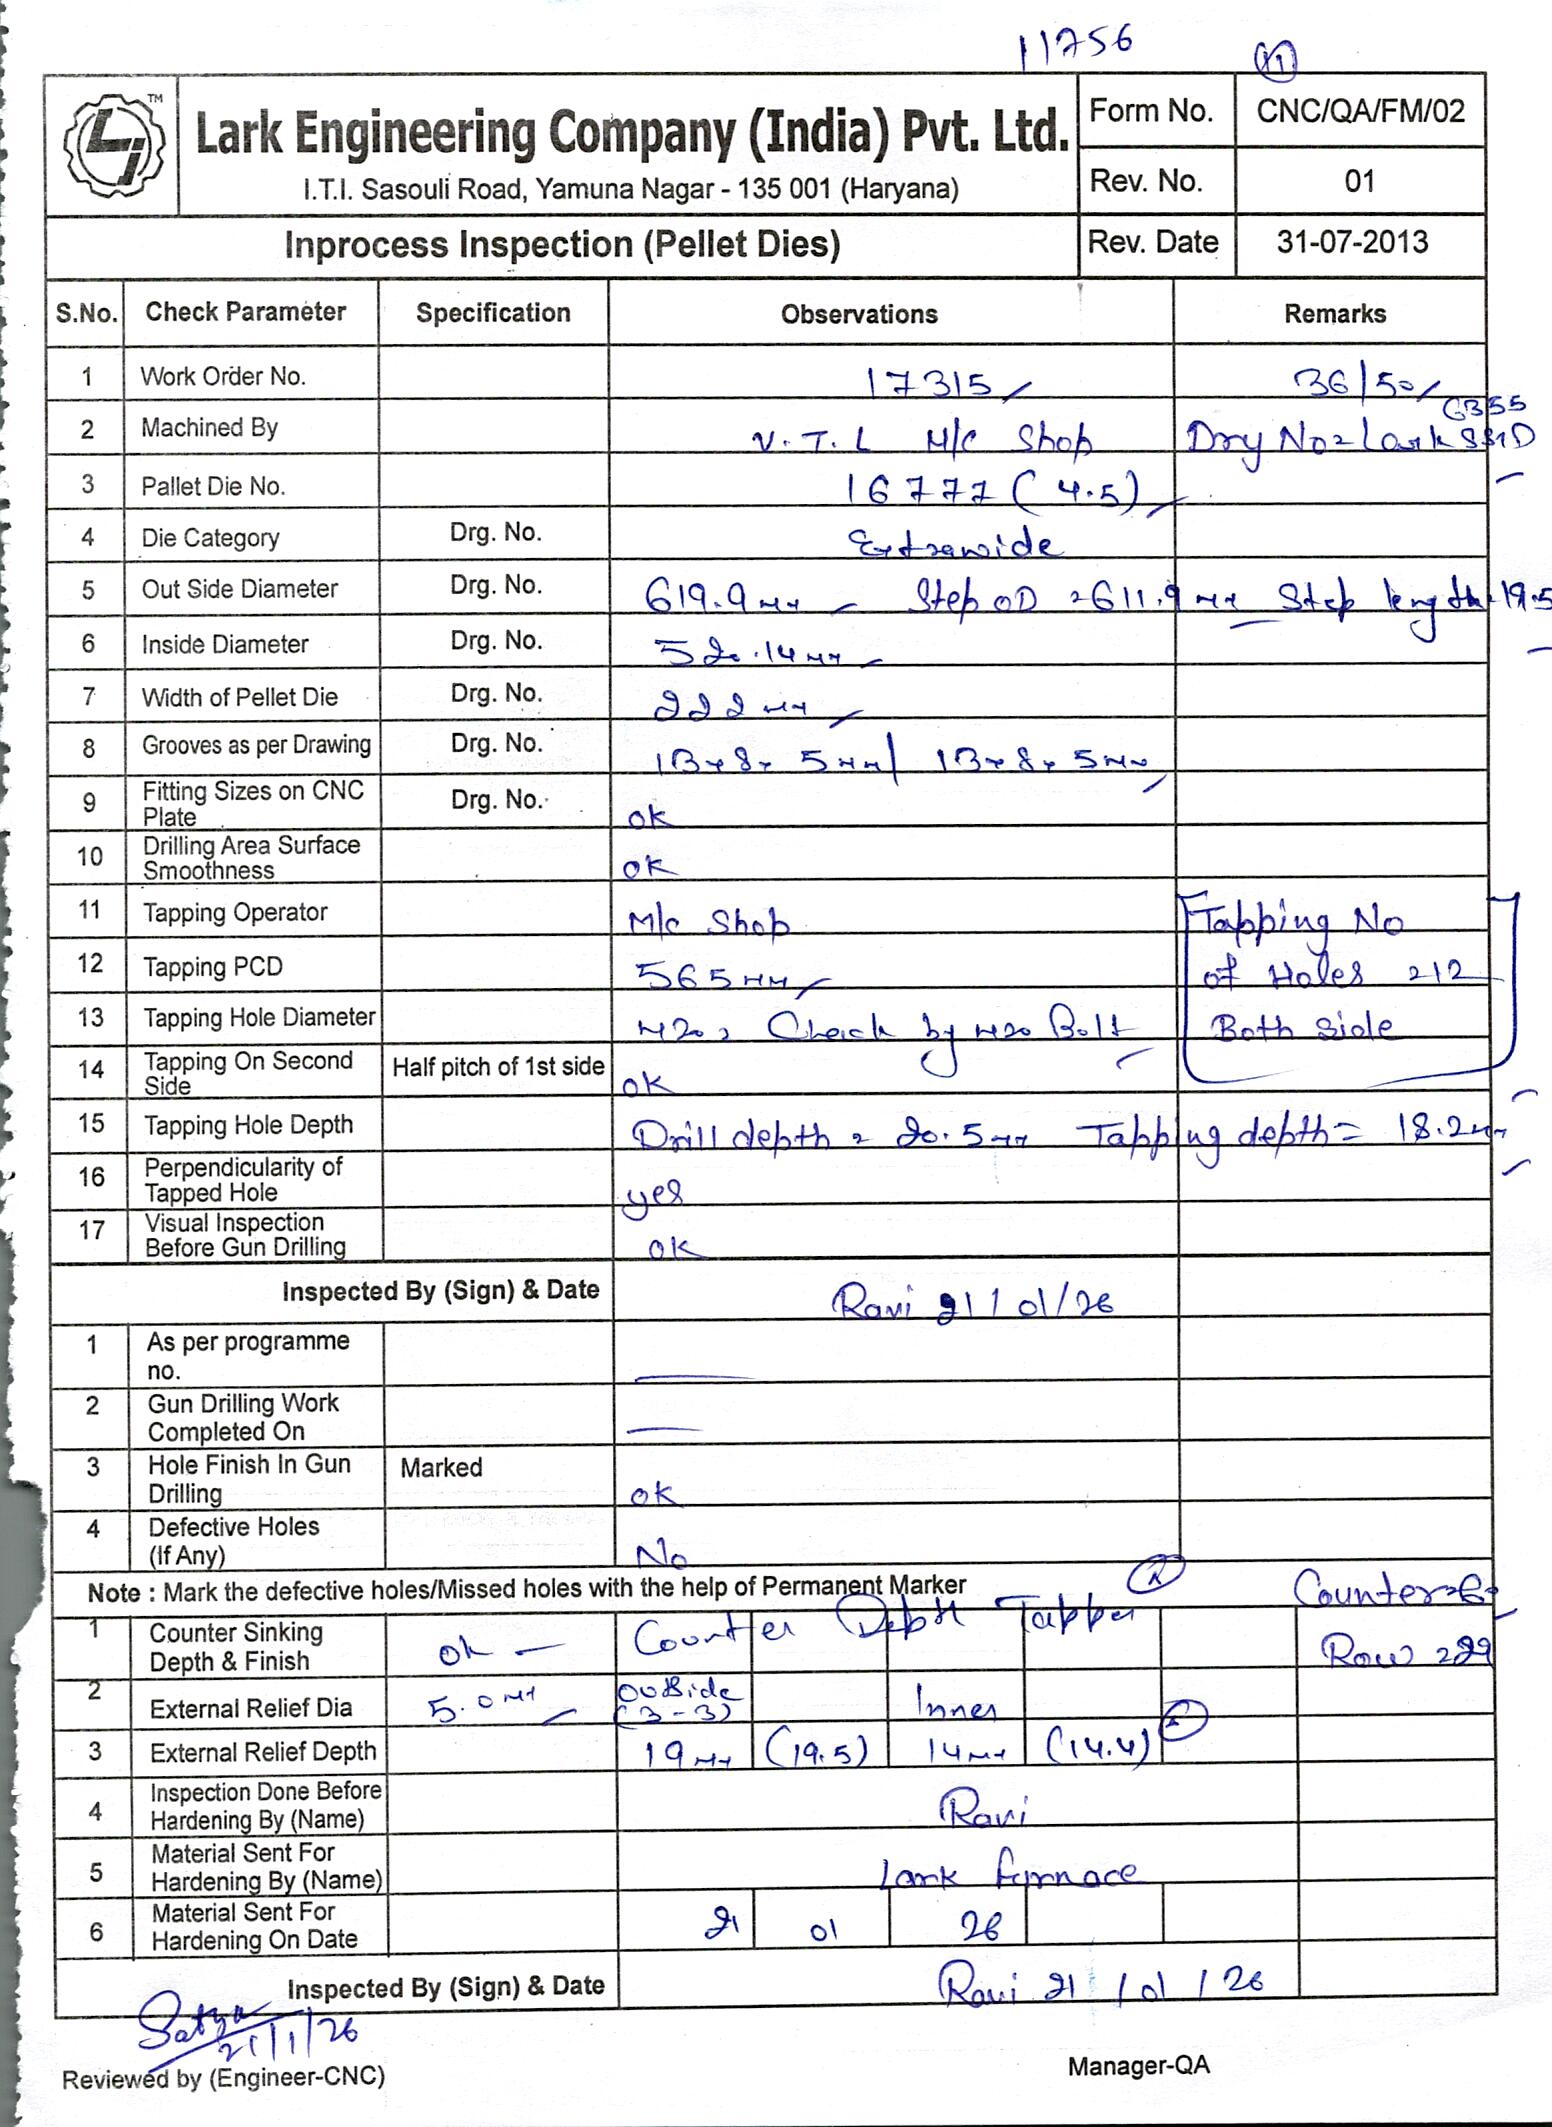 11756
TM
Lark Engineering Company (India) Pvt. Ltd.
I.T.I. Sasouli Road, Yamuna Nagar - 135 001 (Haryana)
Form No. CNC/QA/FM/02
Rev. No. 01
Inprocess Inspection (Pellet Dies) Rev. Date 31-07-2013
S.No. Check Parameter Specification Observations Remarks
1 Work Order No. 17315 36/50
2 Machined By V.T.L M/c Shop
3 Pallet Die No. 16777 (4.5)
4 Die Category Drg. No. Extrawide
5 Out Side Diameter Drg. No. 619.9mm Step OD = 611.9mm Step length = 19.5
6 Inside Diameter Drg. No. 520.14mm
7 Width of Pellet Die Drg. No. 222mm
8 Grooves as per Drawing Drg. No. 13x8x5mm/ 13x8x5mm
9 Fitting Sizes on CNC Plate Drg. No. ok
10 Drilling Area Surface Smoothness ok
11 Tapping Operator M/c Shop Tapping No
12 Tapping PCD 565mm of Holes = 12
13 Tapping Hole Diameter M20 = Check by M20 Bolt Both Side
14 Tapping On Second Side Half pitch of 1st side ok
15 Tapping Hole Depth Drill depth = 20.5mm Tapping depth = 18.2mm
16 Perpendicularity of Tapped Hole yes
17 Visual Inspection Before Gun Drilling ok
Inspected By (Sign) & Date Ravi 21/01/26
1 As per programme no.
2 Gun Drilling Work Completed On
3 Hole Finish In Gun Drilling Marked ok
4 Defective Holes (If Any) No
Note : Mark the defective holes/Missed holes with the help of Permanent Marker
1 Counter Sinking Depth & Finish ok Counter Depth Tapper Row = 29
2 External Relief Dia 5.0mm OutSide (3-3) Inner
3 External Relief Depth 19mm (19.5) 14mm (14.4)
4 Inspection Done Before Hardening By (Name) Ravi
5 Material Sent For Hardening By (Name) Lark furnace
6 Material Sent For Hardening On Date 21 01 26
Inspected By (Sign) & Date Ravi 21/01/26
Satya
21/1/26
Reviewed by (Engineer-CNC) Manager-QA